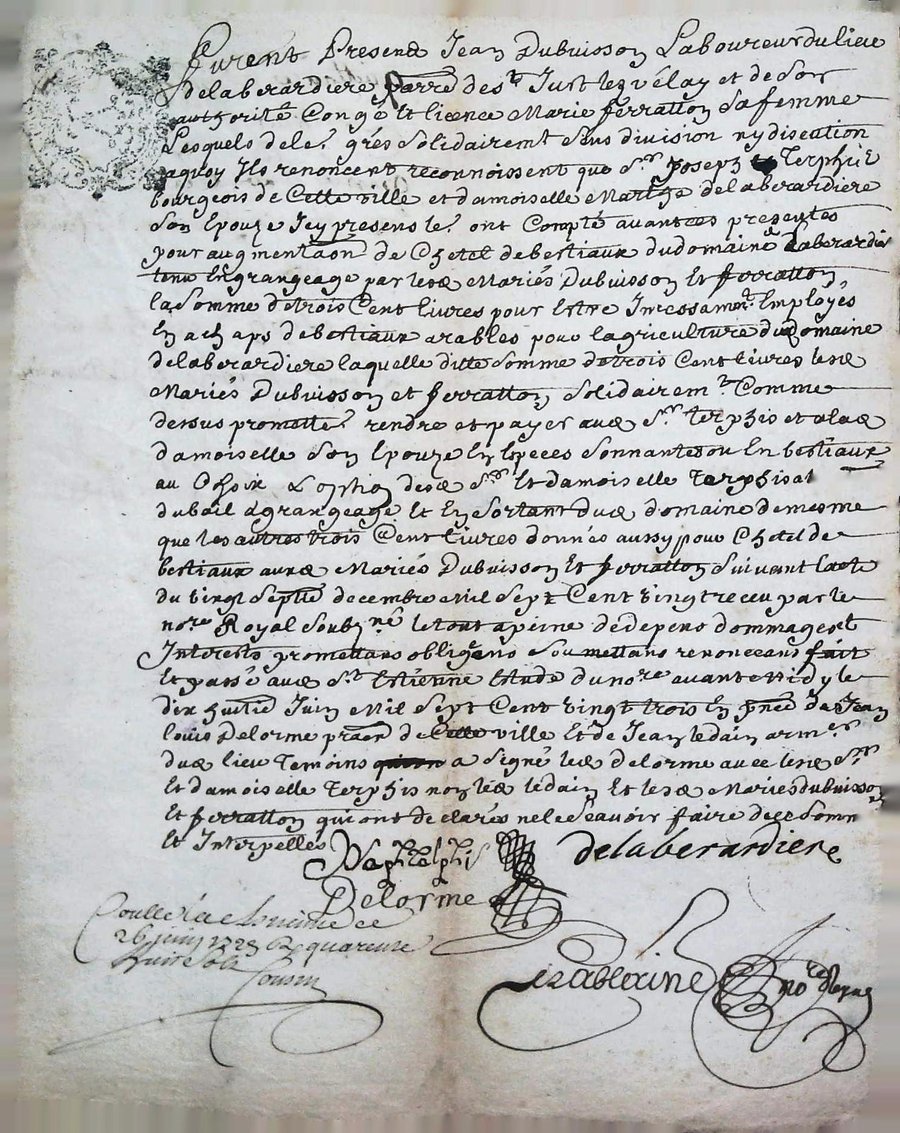 Furent Presend Jean Dubuisson Laboureur du lieu
de laberardiere parre de st Just lez vélay et de son
authorité Congé Et licence Marie ferratton sa femme
Lesquels de le. grés solidairemt sans division ny discution
aquoy Ils renoncent reconnoissent que sr Joseph Terphis
bourgeois de Cette ville et damoiselle de laberardiere
son Epouze Icy presens le. ont Compté avant ces presentes
pour augmentaon de Chetel de bestiaux du domaine de laberardie
tenu En grangeage par lesd Mariés Dubuisson Et ferratton
la somme de trois Cent livres pour Estre Incessamt Employés
En achaps de bestiaux arables pour lagriculture dud domaine
de laberardiere laquelle ditte somme de trois Cent livres lesd
Mariés Dubuisson et ferratton solidairemt Comme
dessus promette. rendre et payer aud sr terphis et a lad
damoiselle son Epouze En Especes sonnantes ou En bestiaux
au Choix Loption desd sr Et damoiselle Terphis
du bail de grangeage Et En sortant dud domaine de mesme
que les autres trois Cent livres donnés aussy pour Chetel de
bestiaux auxd Mariés Dubuisson Et ferratton suivant lacte
du vingt septie decembre Mil sept Cent vingt receu par le
nore Royal soubzné le tout a peine de depens dommages Et
Interests promettans obligens soumettans renonceans fait
Et passé aud st Estienne Etude du nore avant midy le
dix huitie Juin Mil sept Cent vingt trois En pnce de Jean
louis Delorme praon de Cette ville Et de Jean ledain armer
dud lieu Temoins a signé led delorme avec lesd sr
Et damoiselle Terphis non led ledain Et lesd Mariés dubuisson
Et ferratton qui ont declarés ne le scavoir faire de ce somm
Et Interpellés
delaberardiere
Delorme
26 juin 1723 quarente